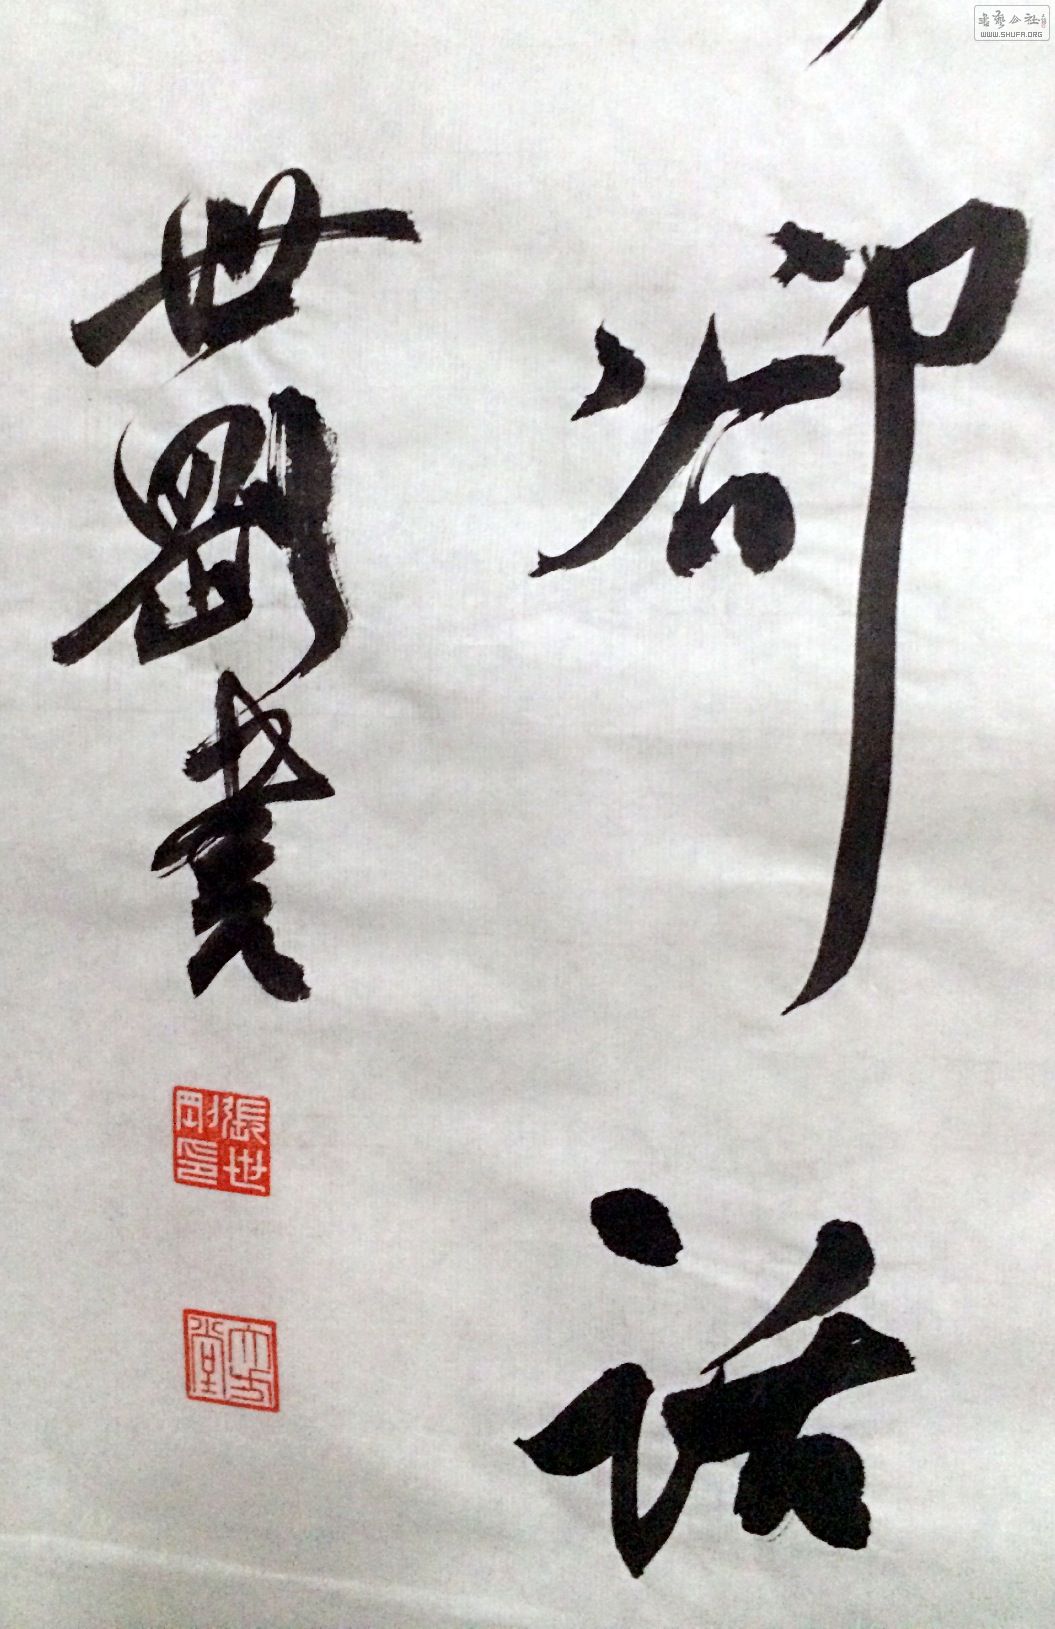 卻話
世剛書
張世剛印
大方堂
書藝公社
WWW.SHUFA.ORG